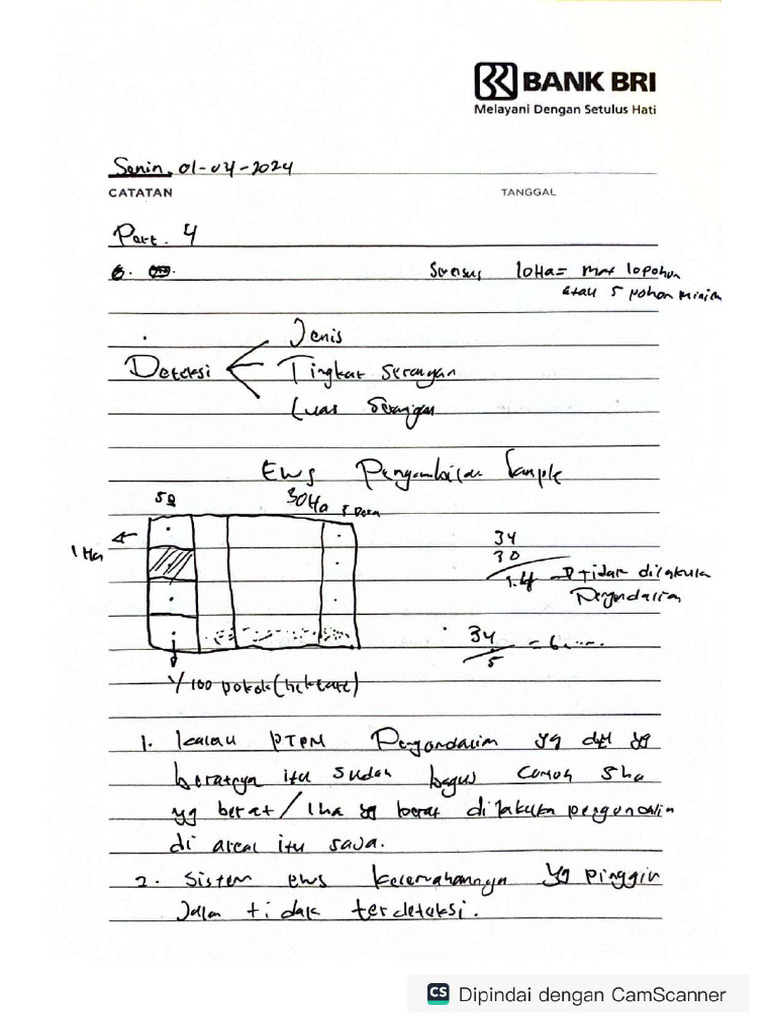 BANK BRI
Melayani Dengan Setulus Hati
Senin, 01-04-2024
CATATAN TANGGAL
Part. 4
6. Sensus 10Ha = max 10 pohon
atau 5 pohon minim
Jenis
Deteksi Tingkat Serangan
Luas Serangan
EWS Pengambilan Sample
30Ha
1 Ha
34
30
1.4 tidak dilakukan
Pengendalian
34
5 = 6.....
1/100 pokok (hektare)
1. kalau PTPN Pengendalian yg dgn yg
beratnya itu sudah bagus Contoh 5ha
yg berat / 1ha yg berat dilakukan pengendalian
di areal itu saja.
2. Sistem ews kelemahannya yg pinggir
Jalan tidak terdeteksi.
CS Dipindai dengan CamScanner